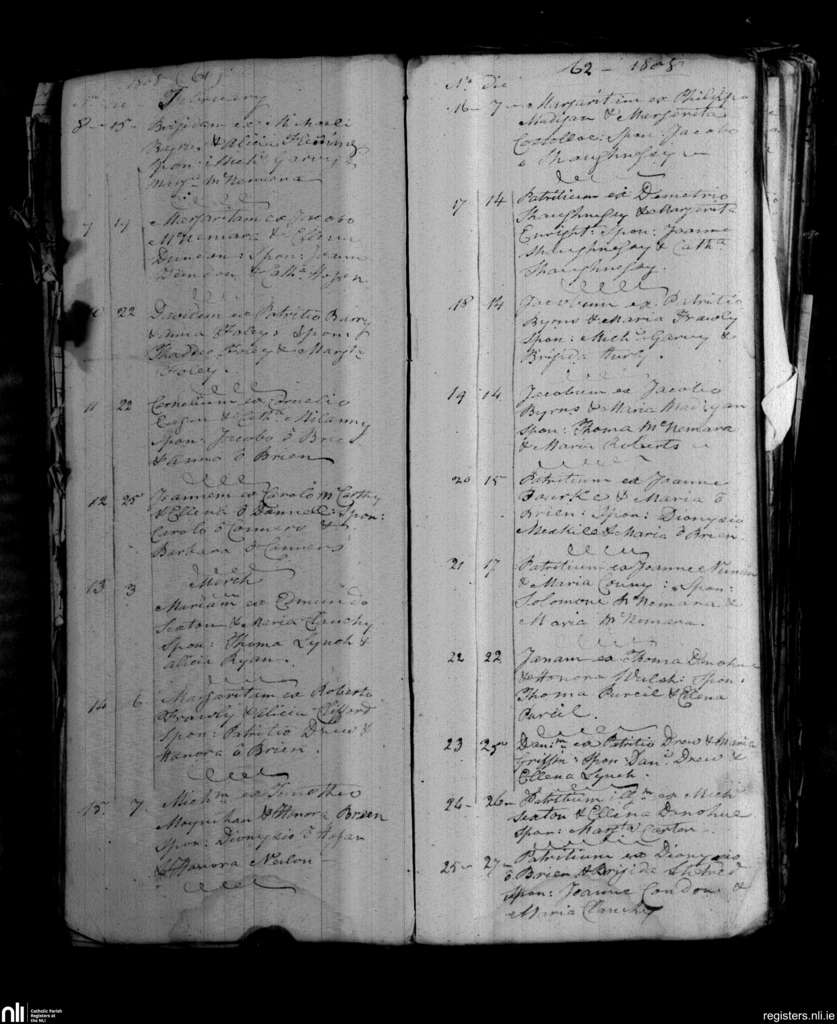 1808 (61)
No Die February
8 - 15 - Brigidam ex Michaeli
Byrne & Alicia Fleming
Spon: Michl Garvy &
Margta McNemara
9 19 Margaritam ex Jacobo
McNemara & Ellena
Duncan: Spon: Joanne
& Cathna Hogan
22 Davidem ex Patritio Barry
& Anna Foley: Spon:
Thaddeo Foley & Margta
Foley.
11 22 Cornelium ex Cornelio
& Cathna
Spon: Jacobo ō Brien
& Anna ō Brien
12 25 Joannem ex Carolo McCarthy
& Ellena ō Daniel: Spon:
Carolo ō Conners &
Barbara ō Conners
March
13 3 Mariam ex Edmundo
Seaton & Maria Clanchy
Spon: Thoma Lynch &
Alicia Ryan.
14 6 Margaritam ex Roberto
Frawly & Alicia Clifford
Spon: Patritio Drew &
Hanora ō Brien.
15 7 Michm ex Timotheo
Moynihan & Honora Brien
Spon: Dionysio ō Hogan
& Honora Neilon
62 - 1808
No Die
16 - 7 - Margaritam ex Philippo
Madigan & Margarita
Costolloe: Spon: Jacobo
ō Shaughnessy
17 14 Patritium ex Demetrio
Shaughnessy & Margarita
Enright: Spon: Joanne
Shaughnessy & Cathna
Shaughnessy.
18 14 Jacobum ex Patritio
Byrns & Maria Frawly
Spon: Michl Garvy &
Brigida
19 14 Jacobum ex Jacobo
Byrns & Maria Madigan
Spon: Thoma McNemara
& Maria Roberts
20 15 Patritium ex Joanne
& Maria ō
Brien: Spon: Dionysio
& Maria ō Brien.
21 17 Patritium ex Joanne
& Maria : Spon:
Solomone McNemara &
Maria McNemara.
22 22 Janam ex Thoma Donohue
& Honora Walsh: Spon:
Thoma Purcil & Ellena
Purcil.
23 25 Danm ex Patritio Drew & Maria
Griffin: Spon: Danl Drew &
Ellena Lynch.
24 - 26 - Patritium ex Mich
Seaton & Ellena Donohue
Spon: Margta Carton
25 - 27 - Patritium ex Dionysio
ō Brien & Brigida
Spon: Joanne Condon &
Maria Clanchy
nli
Catholic Parish
Registers at
the NLI
registers.nli.ie